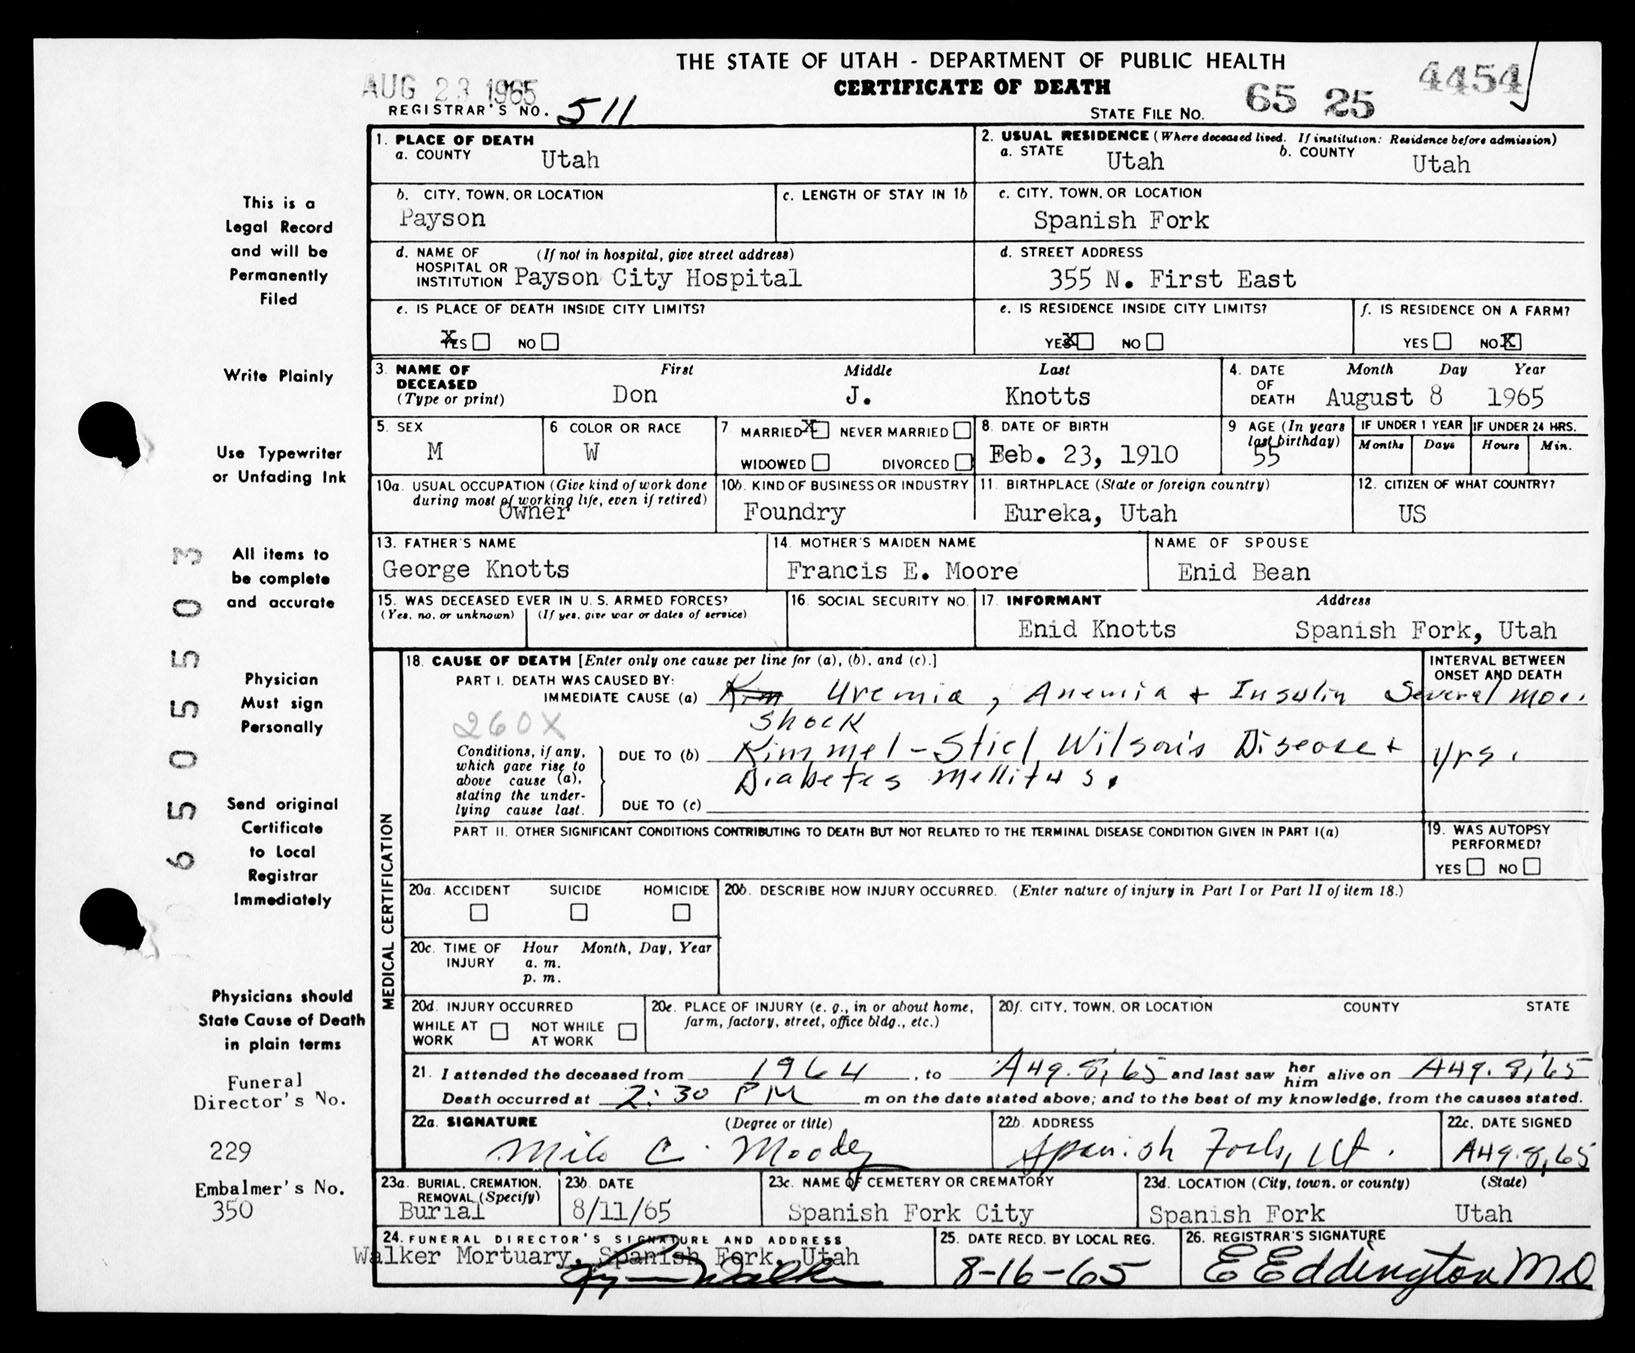 THE STATE OF UTAH - DEPARTMENT OF PUBLIC HEALTH
CERTIFICATE OF DEATH
AUG 23 1965
REGISTRAR'S NO. 511
STATE FILE NO. 65 25 4454
This is a
Legal Record
and will be
Permanently
Filed
Write Plainly
Use Typewriter
or Unfading Ink
All items to
be complete
and accurate
Physician
Must sign
Personally
Send original
Certificate
to Local
Registrar
Immediately
Physicians should
State Cause of Death
in plain terms
Funeral
Director's No.
229
Embalmer's No.
350
6 5 0 5 5 0 3
1. PLACE OF DEATH
a. COUNTY Utah
2. USUAL RESIDENCE (Where deceased lived. If institution: Residence before admission)
a. STATE Utah b. COUNTY Utah
b. CITY, TOWN, OR LOCATION
Payson
c. LENGTH OF STAY IN 1b
c. CITY, TOWN, OR LOCATION
Spanish Fork
d. NAME OF HOSPITAL OR INSTITUTION (If not in hospital, give street address)
Payson City Hospital
d. STREET ADDRESS
355 N. First East
e. IS PLACE OF DEATH INSIDE CITY LIMITS?
YES X NO
e. IS RESIDENCE INSIDE CITY LIMITS?
YES X NO
f. IS RESIDENCE ON A FARM?
YES NO X
3. NAME OF DECEASED (Type or print)
First Middle Last
Don J. Knotts
4. DATE OF DEATH
Month Day Year
August 8 1965
5. SEX
M
6 COLOR OR RACE
W
7 MARRIED X NEVER MARRIED
WIDOWED DIVORCED
8. DATE OF BIRTH
Feb. 23, 1910
9 AGE (In years last birthday)
55
IF UNDER 1 YEAR
Months Days
IF UNDER 24 HRS.
Hours Min.
10a. USUAL OCCUPATION (Give kind of work done
during most of working life, even if retired)
Owner
10b. KIND OF BUSINESS OR INDUSTRY
Foundry
11. BIRTHPLACE (State or foreign country)
Eureka, Utah
12. CITIZEN OF WHAT COUNTRY?
US
13. FATHER'S NAME
George Knotts
14. MOTHER'S MAIDEN NAME
Francis E. Moore
NAME OF SPOUSE
Enid Bean
15. WAS DECEASED EVER IN U. S. ARMED FORCES?
(Yes, no, or unknown) (If yes, give war or dates of service)
16. SOCIAL SECURITY NO.
17. INFORMANT Address
Enid Knotts Spanish Fork, Utah
MEDICAL CERTIFICATION
18. CAUSE OF DEATH [Enter only one cause per line for (a), (b), and (c).]
INTERVAL BETWEEN
ONSET AND DEATH
PART I. DEATH WAS CAUSED BY:
IMMEDIATE CAUSE (a) Kim Uremia, Anemia + Insulin Several mos.
Shock
260X
Conditions, if any,
which gave rise to
above cause (a),
stating the under-
lying cause last.
DUE TO (b) Kimmel-Stiel Wilson's Disease + yrs.
Diabetes Mellitus.
DUE TO (c)
PART II. OTHER SIGNIFICANT CONDITIONS CONTRIBUTING TO DEATH BUT NOT RELATED TO THE TERMINAL DISEASE CONDITION GIVEN IN PART I(a)
19. WAS AUTOPSY
PERFORMED?
YES NO
20a. ACCIDENT SUICIDE HOMICIDE
20b. DESCRIBE HOW INJURY OCCURRED. (Enter nature of injury in Part I or Part II of item 18.)
20c. TIME OF INJURY Hour Month, Day, Year
a. m.
p. m.
20d. INJURY OCCURRED
WHILE AT WORK NOT WHILE AT WORK
20e. PLACE OF INJURY (e. g., in or about home,
farm, factory, street, office bldg., etc.)
20f. CITY, TOWN, OR LOCATION COUNTY STATE
21. I attended the deceased from 1964, to Aug. 8, '65 and last saw her him alive on Aug. 8, '65
Death occurred at 2:30 PM m on the date stated above; and to the best of my knowledge, from the causes stated.
22a. SIGNATURE (Degree or title)
Milo C. Moody
22b. ADDRESS
Spanish Fork, Ut.
22c. DATE SIGNED
Aug. 8, 65
23a. BURIAL, CREMATION,
REMOVAL (Specify)
Burial
23b. DATE
8/11/65
23c. NAME OF CEMETERY OR CREMATORY
Spanish Fork City
23d. LOCATION (City, town, or county) (State)
Spanish Fork Utah
24. FUNERAL DIRECTOR'S SIGNATURE AND ADDRESS
Walker Mortuary, Spanish Fork, Utah
25. DATE RECD. BY LOCAL REG.
8-16-65
26. REGISTRAR'S SIGNATURE
E Eddington MD